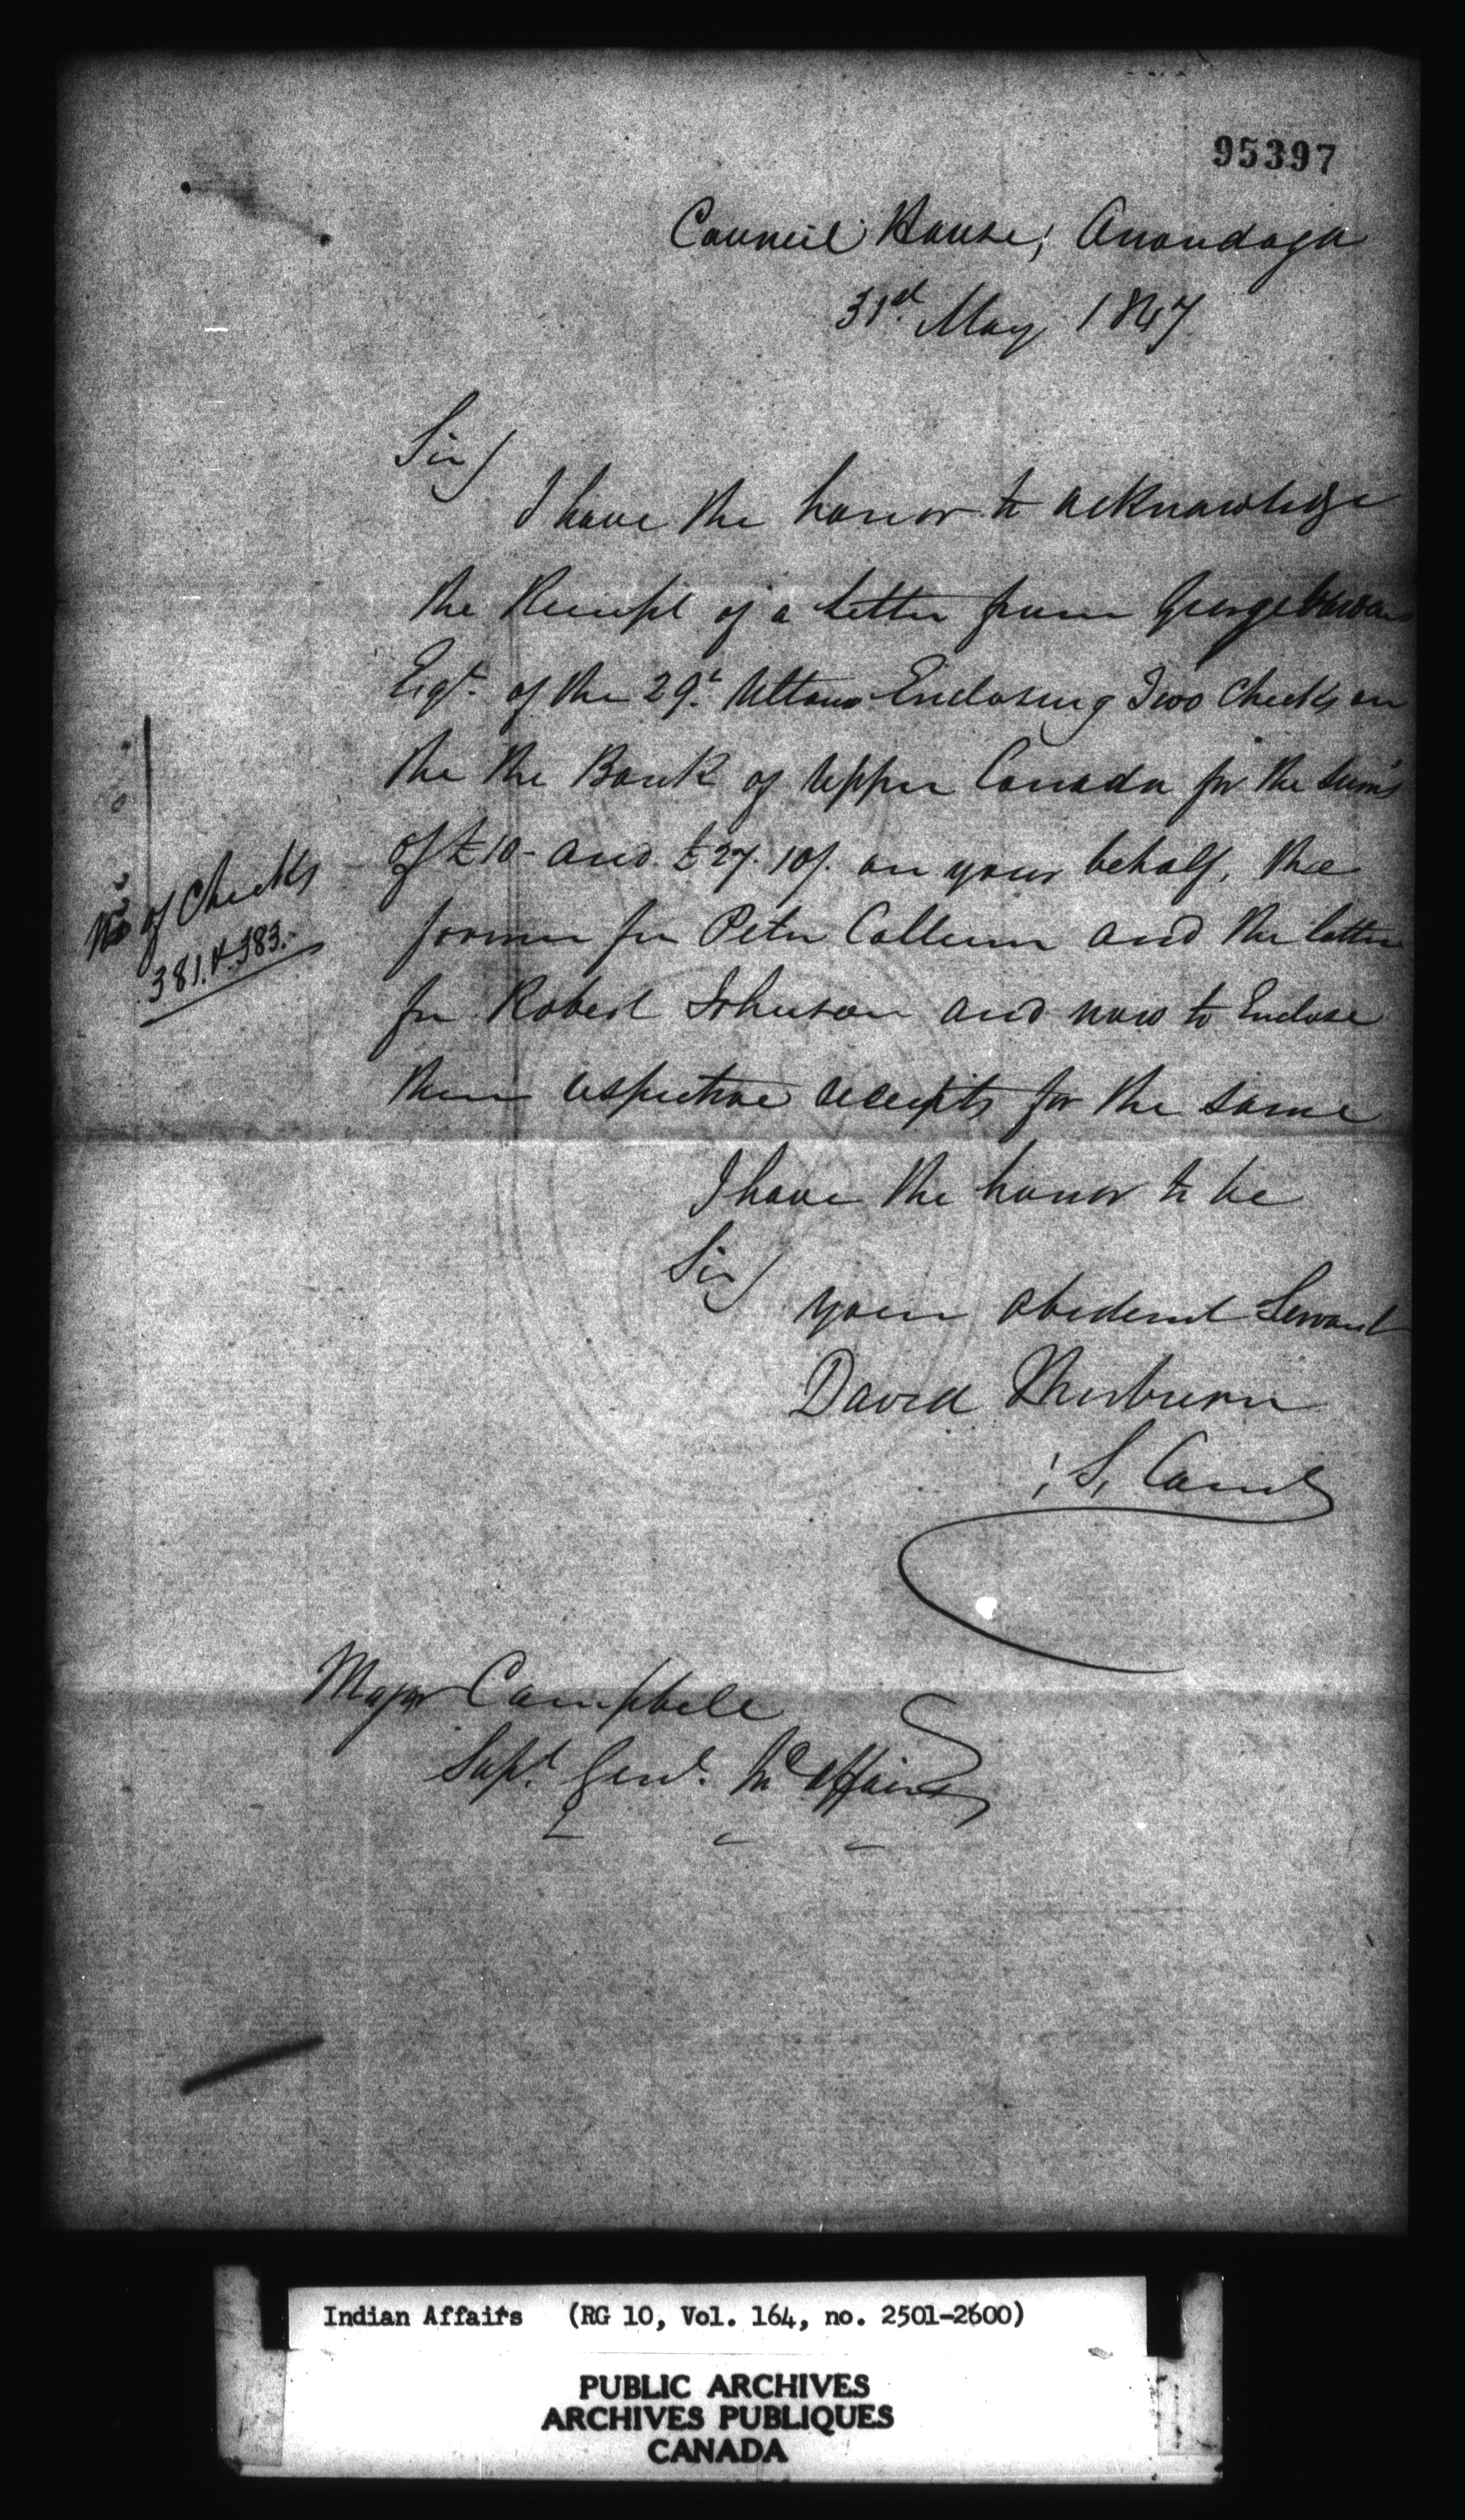 95397
Council House, Onondaga
31st May 1847
Sir/
I have the honor to acknowledge
the Receipt of a letter from George
Esqr. of the 29t. Ultimo Enclosing Two Checks on
the the Bank of Upper Canada for the sums
of £10- and £27.10/. on your behalf, the
former for Peter and the latter
for Robert Johnson and now to Enclose
their respective receipts for the same
No of Checks
381. & 383.-
I have the honor to be
Sir/
your obedient Servant
David Thorburn
S, Comr
Major Campbell
Supt. Genl. In affairs
Indian Affairs (RG 10, Vol. 164, no. 2501-2600)
PUBLIC ARCHIVES
ARCHIVES PUBLIQUES
CANADA